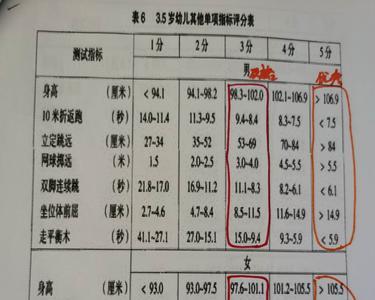 表6 3.5岁幼儿其他单项指标评分表
测试指标 1分 2分 3分 4分 5分
男
身高 (厘米) < 94.1 94.1-98.2 98.3-102.0 102.1-106.9 > 106.9
10米折返跑 (秒) 14.0-11.4 11.3-9.5 9.4-8.4 8.3-7.5 < 7.5
立定跳远 (厘米) 27-34 35-52 53-69 70-84 > 84
网球掷远 (米) 1.5 2.0-2.5 3.0-4.0 4.5-5.5 > 5.5
双脚连续跳 (秒) 21.8-17.0 16.9-11.2 11.1-8.3 8.2-6.1 < 6.1
坐位体前屈 (厘米) 2.7-4.6 4.7-8.4 8.5-11.5 11.6-14.9 > 14.9
走平衡木 (秒) 41.1-27.1 27.0-15.1 15.0-9.4 9.3-5.9 < 5.9
女
身高 (厘米) < 93.0 93.0-97.5 97.6-101.1 101.2-105.5 > 105.5